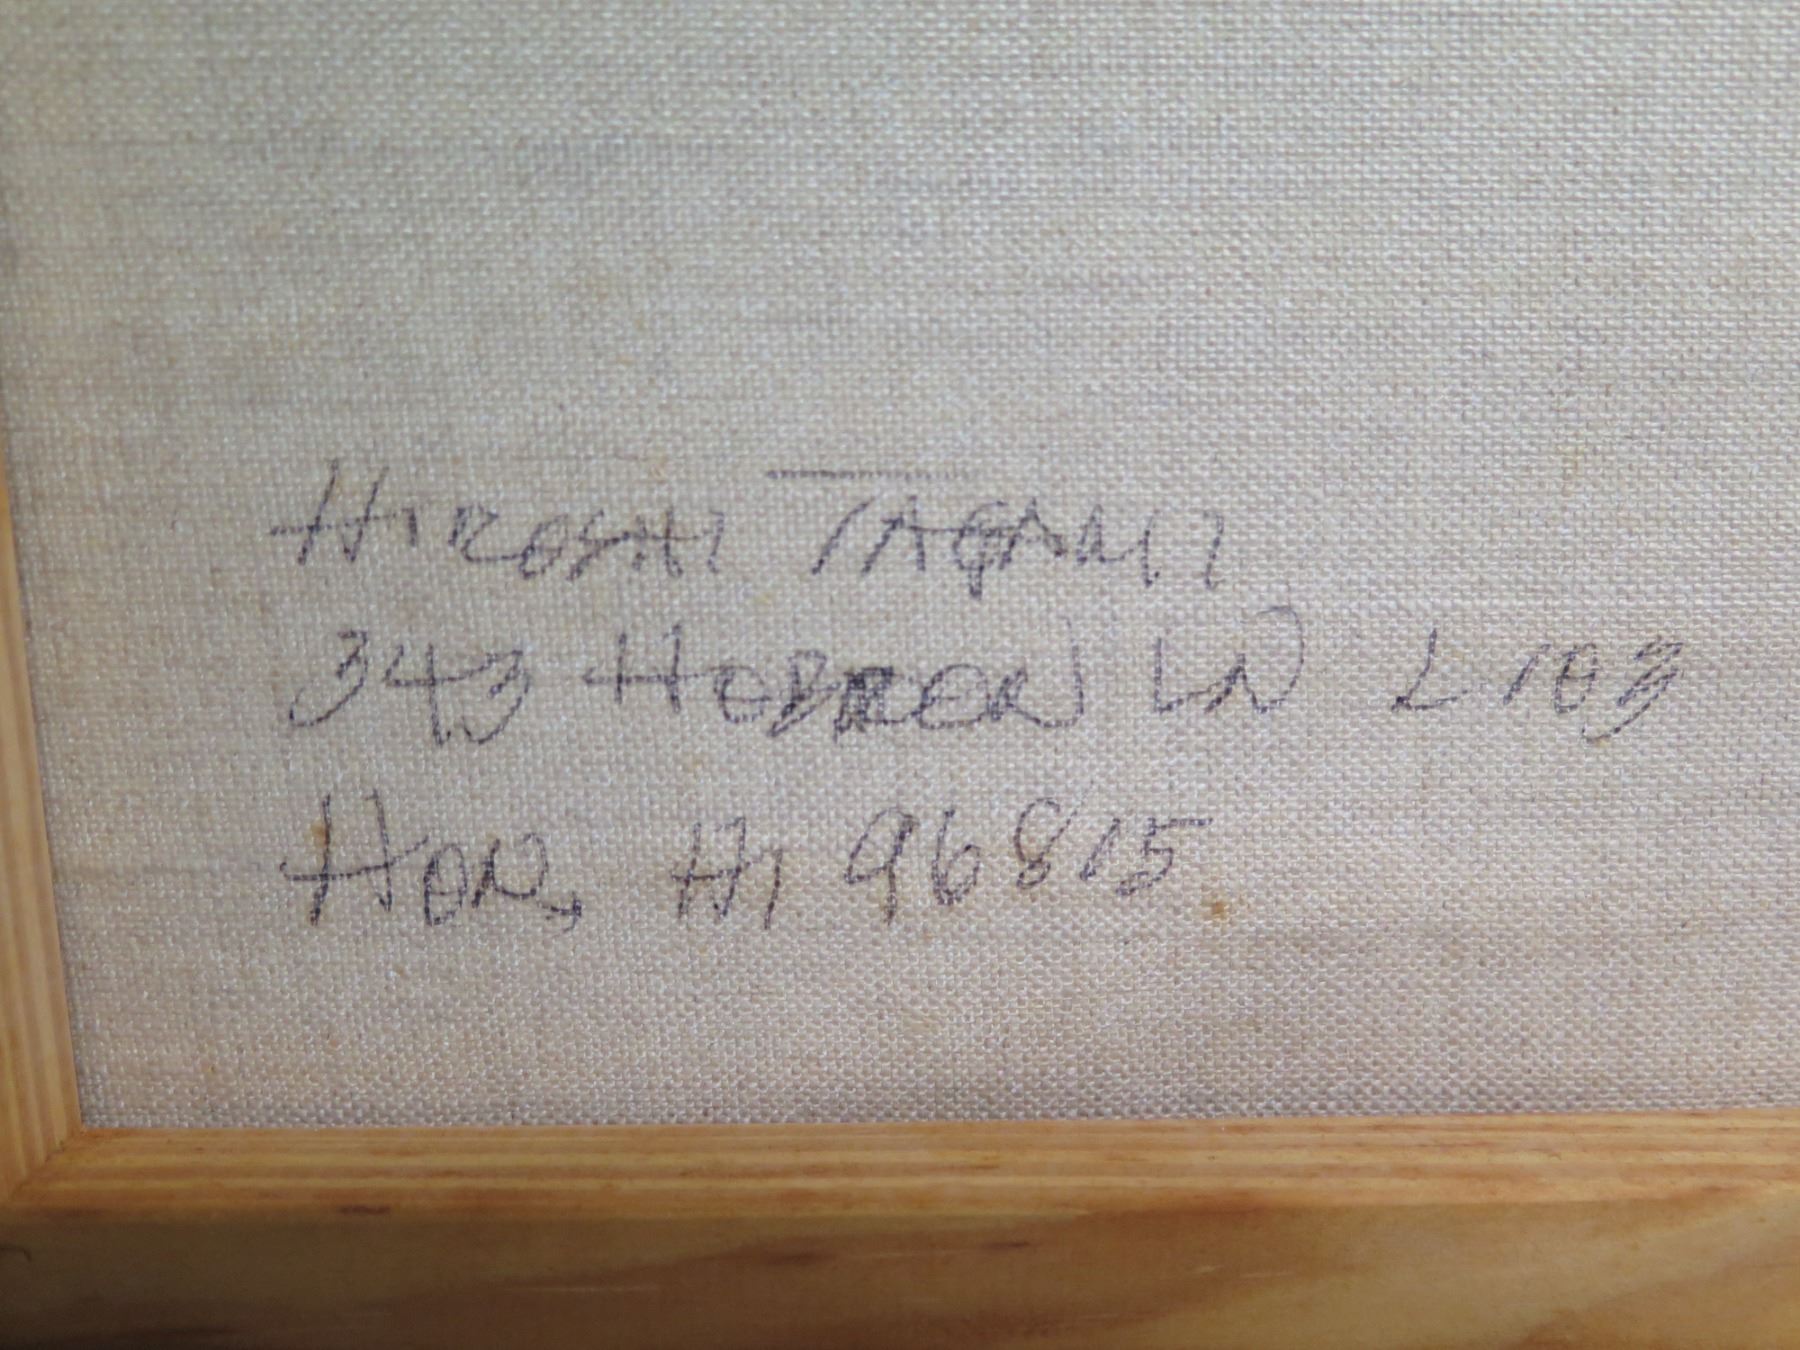 HIROSHI TAGAMI
343 HOBRON LN L103
HON, HI 96815